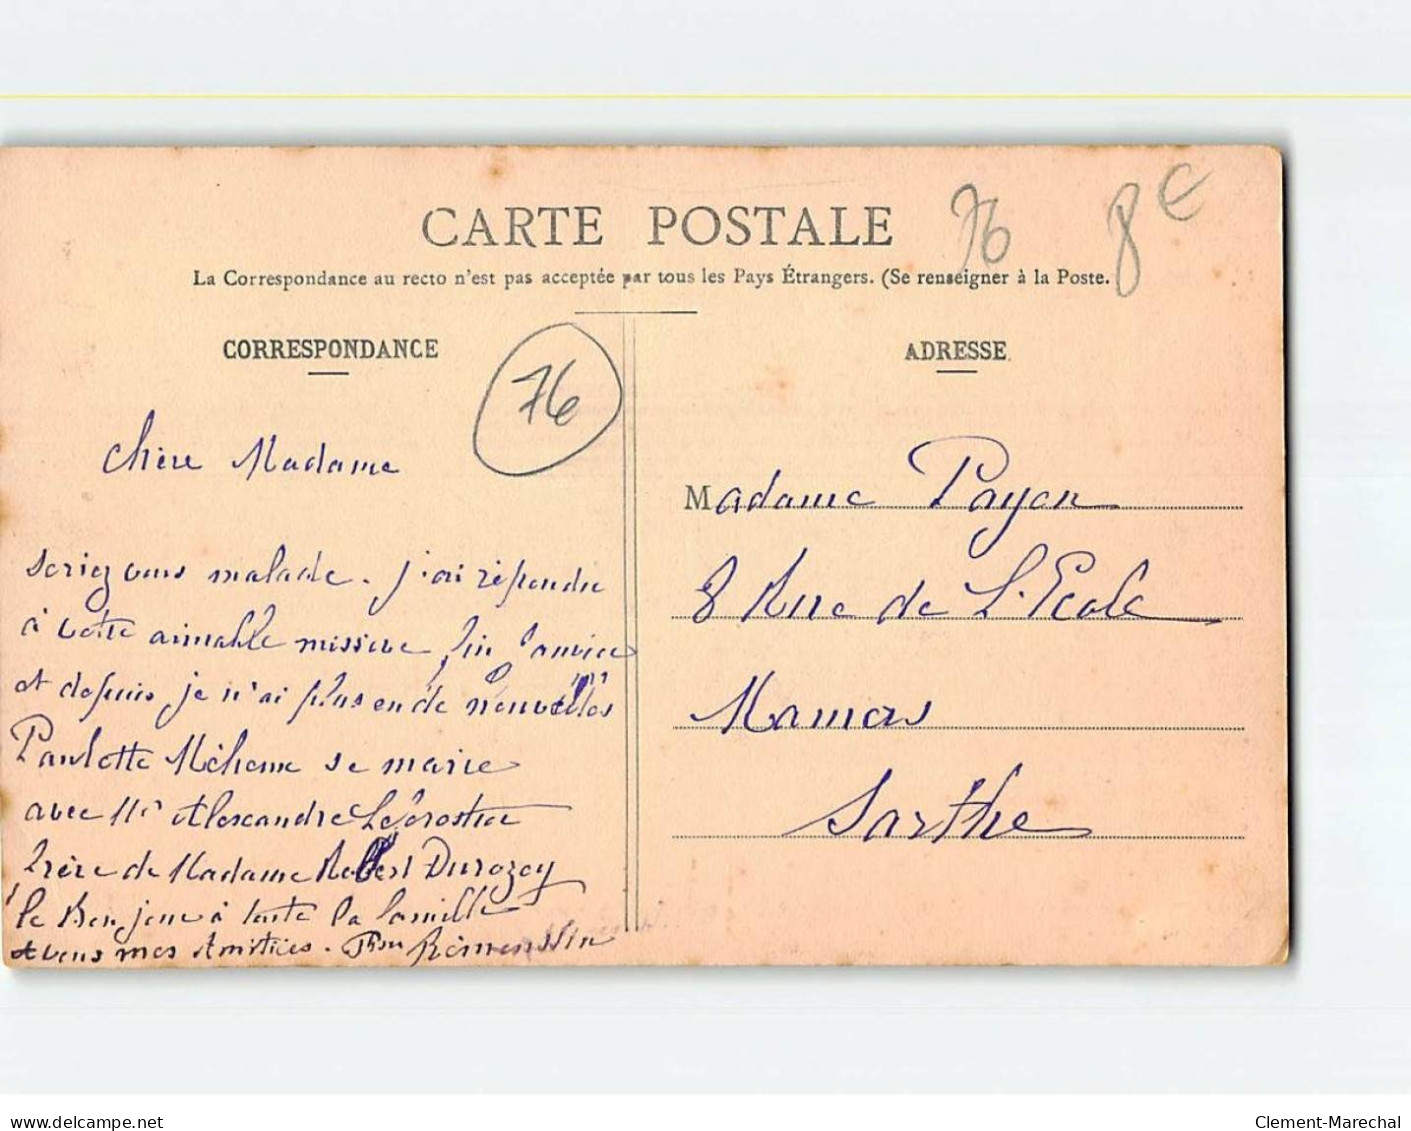 CARTE POSTALE
76
8€
La Correspondance au recto n'est pas acceptée par tous les Pays Étrangers. (Se renseigner à la Poste.
CORRESPONDANCE
76
chère Madame
seriez vous malade. j'ai répondu
à votre aimable missive fin Janvier
et depuis je n'ai plus eu de nouvelles
Paulette Mèhenne se marie
avec Mr Alexandre
frère de Madame Robert Durozoy
le Bonjour à toute la famille
et vous mes Amitiés.
ADRESSE
Madame Payen
8 Rue de L'Ecole
Mamers
Sarthe
delcampe.net
Clement-Marechal